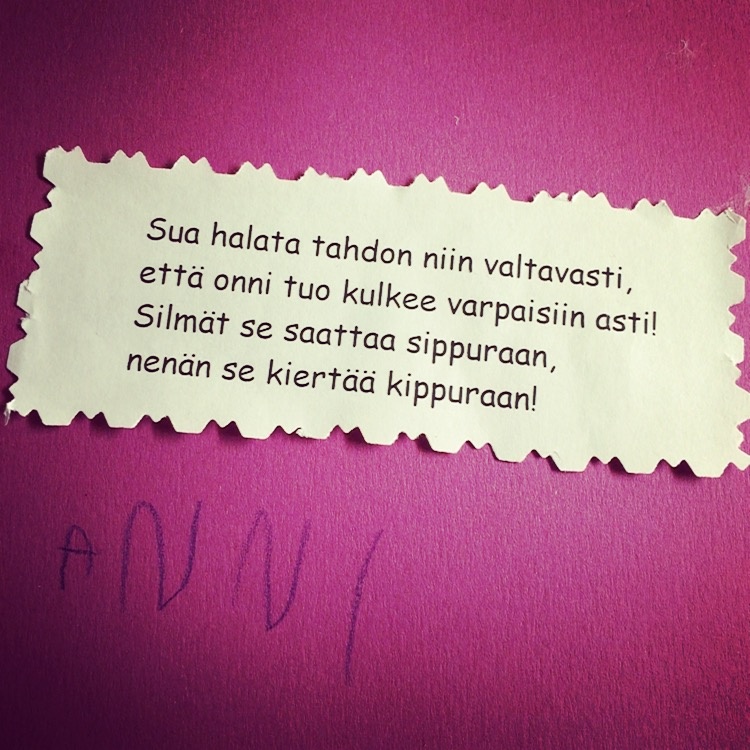 Sua halata tahdon niin valtavasti,
että onni tuo kulkee varpaisiin asti!
Silmät se saattaa sippuraan,
nenän se kiertää kippuraan!
ANNI